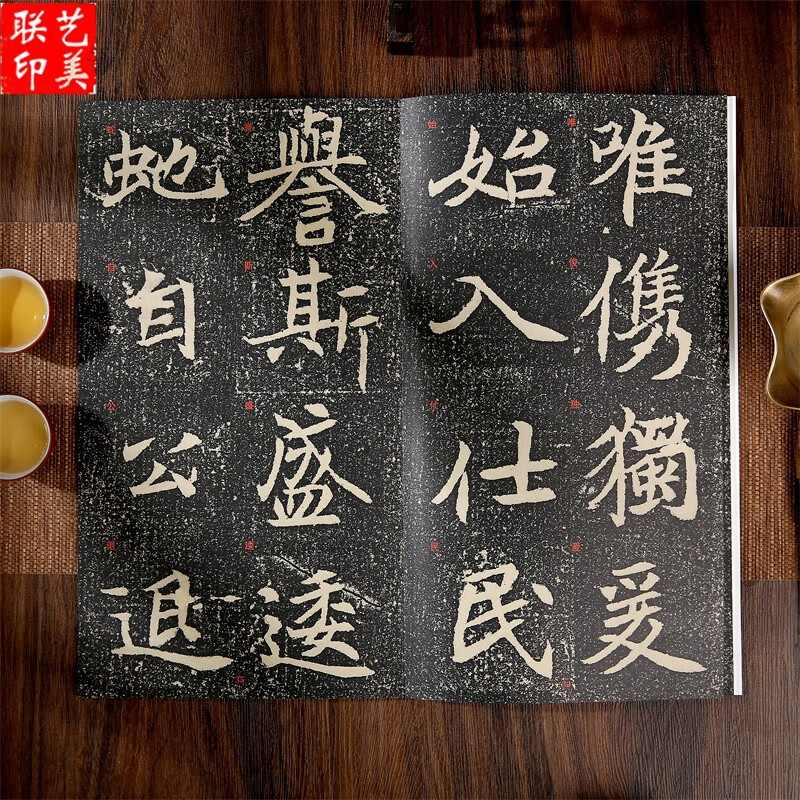 艺美
联印
唯儁獨爰
始入仕民
譽斯盛逶
虵自公退
15